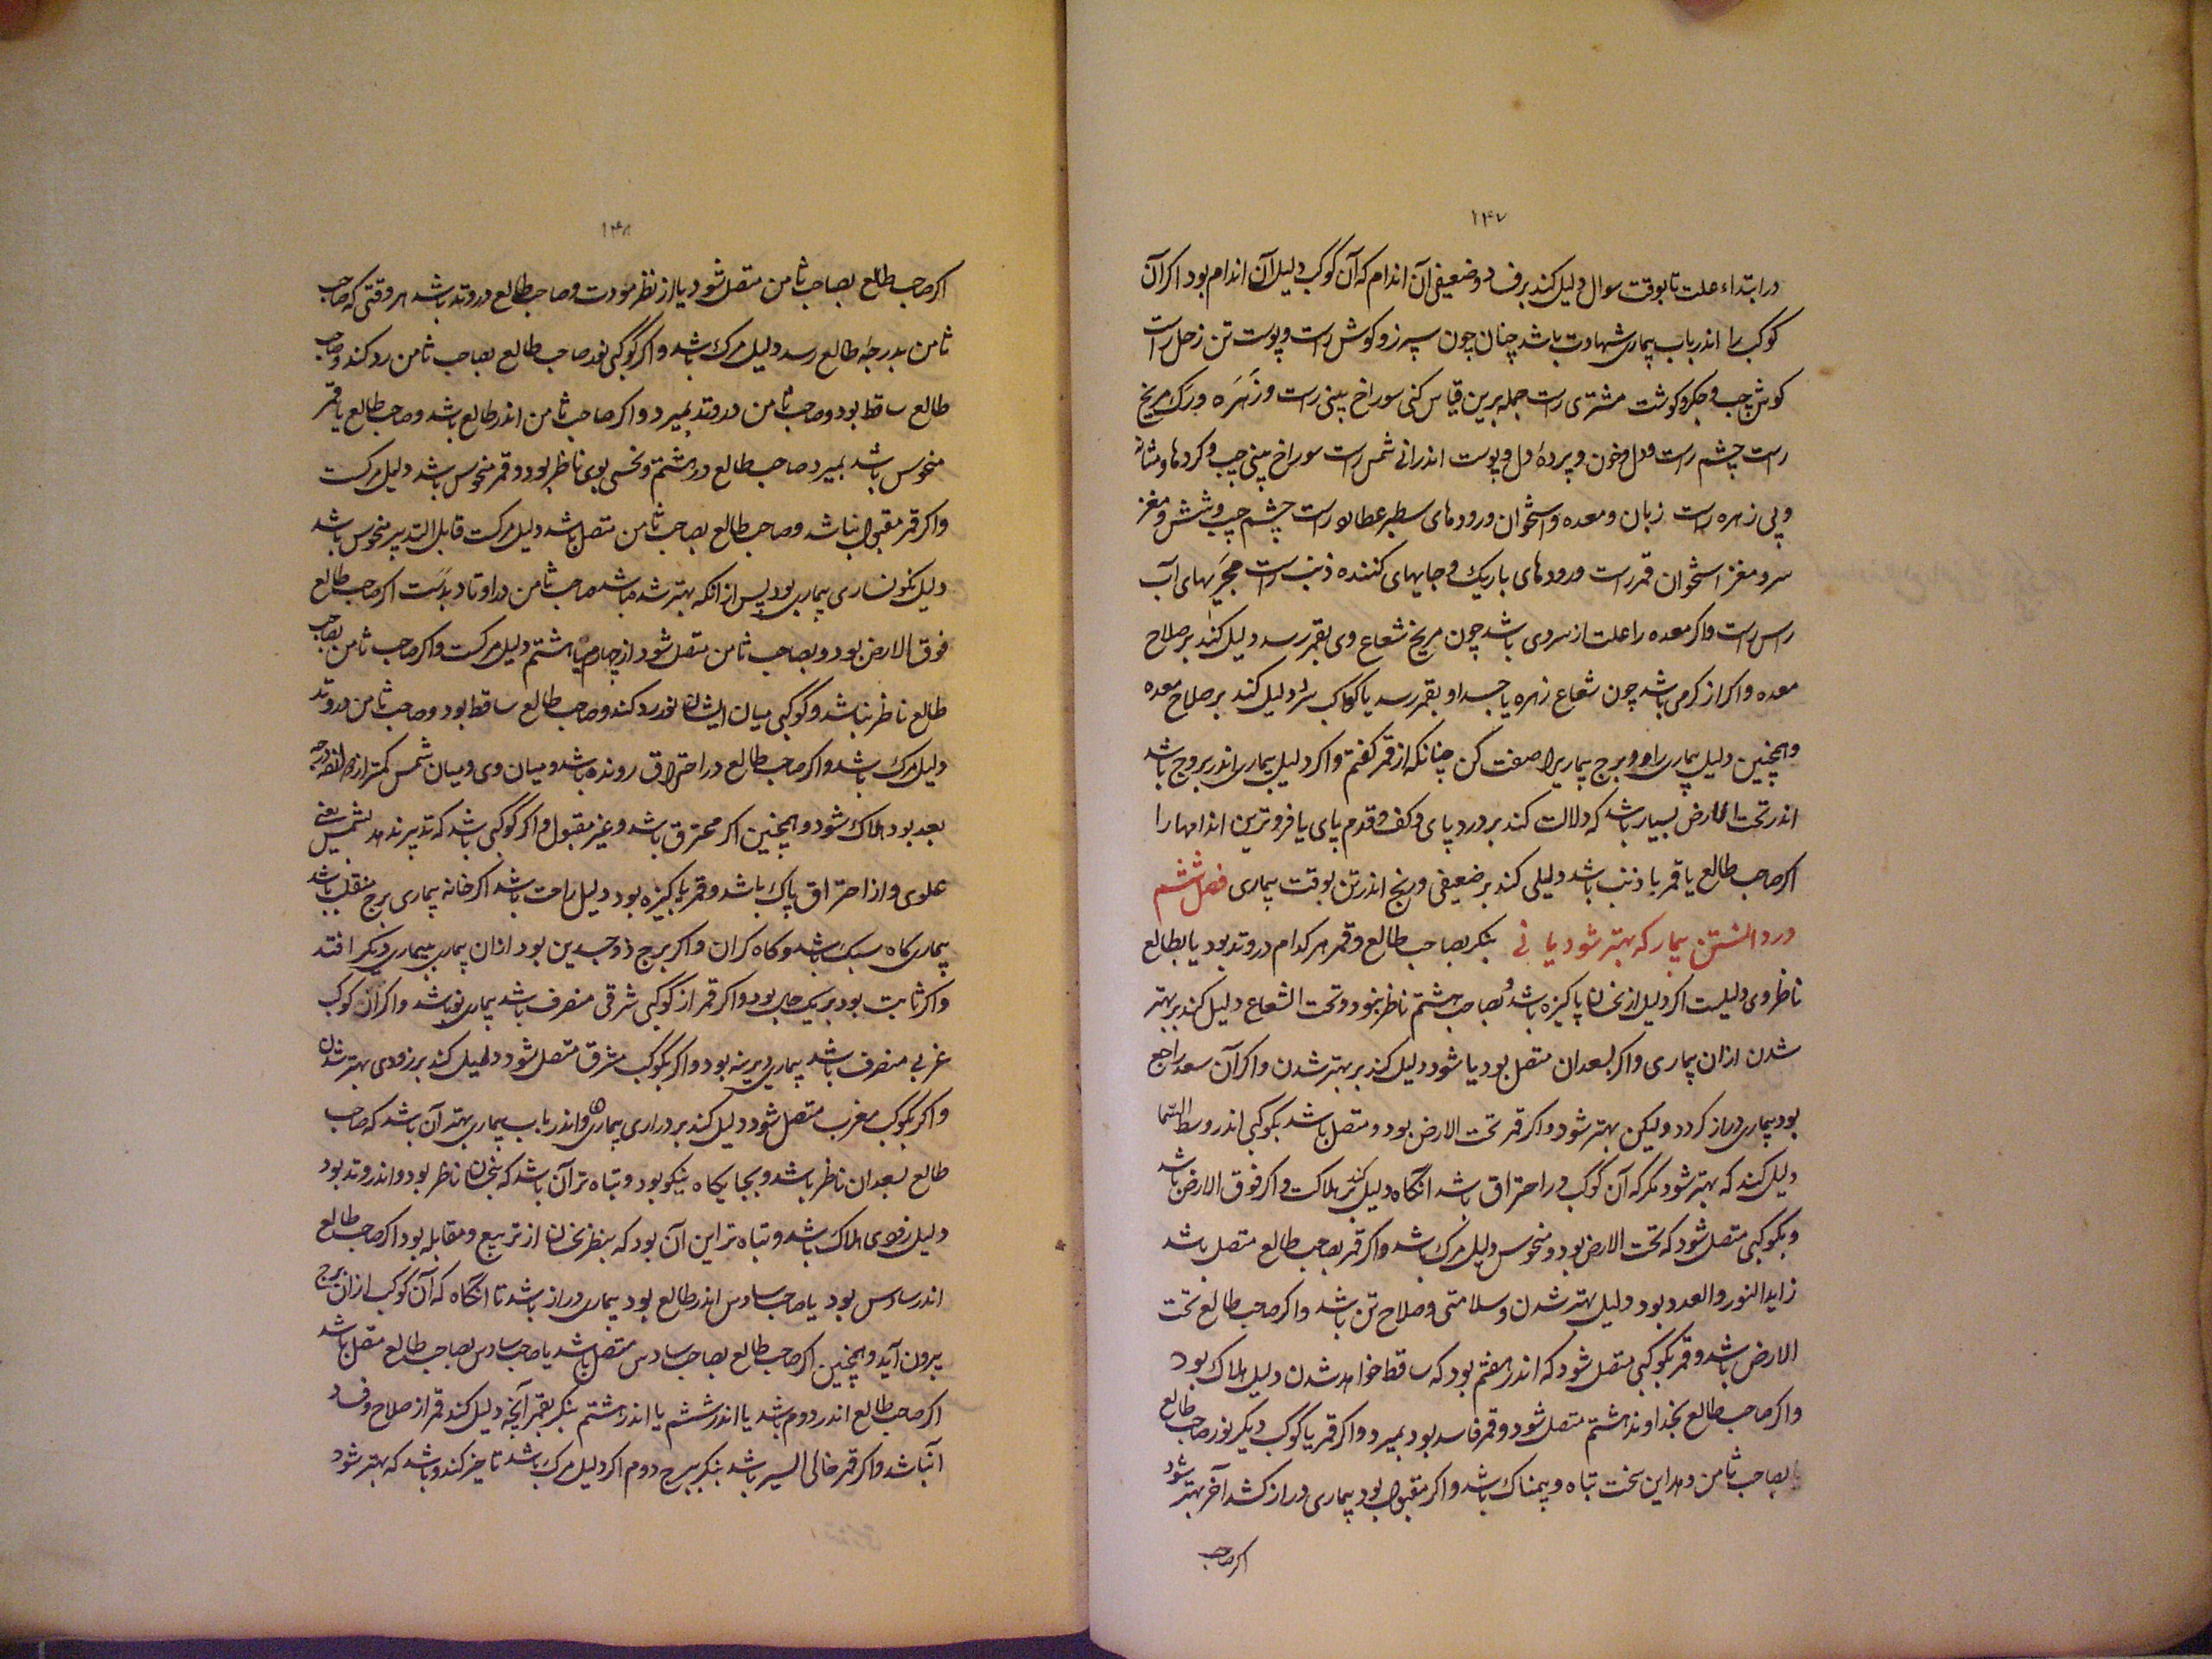 ۱۴۷
در ابتداء علت تا بوقت سوال دلیل کند بر فساد و ضعیفی آن اندام که آن کوکب دلیل آن اندام بود اکر آن
کوکب را اندر باب بیماری شهادت باشد چنان چون سپرز و کوش راست و پوست تن زحل راست
کوش چپ و جکر و کوشت مشتری راست جمله برین قیاس کنی سوراخ بینی راست و زَهَره و رک مریخ
راست چشم راست و دل و خون و پردهٔ دل و پوست اندرانی شمس راست سوراخ بینی چپ و کردها و مثانه
و پی زهره راست زبان و معده و استخوان و رودهای سطبر عطارد راست چشم چپ و شش و مغز
سر و مغز استخوان قمر راست و رودهای باریک و جایهای کننده ذنب راست مجریهای آب
راس راست واکر معده را علت از سردی باشد چون مریخ شعاع وی بقمر رسد دلیل کند بر صلاح
معده واکر از کرمی باشد چون شعاع زهره یا جسد او بقمر رسد یا کوکب سرد دلیل کند بر صلاح معده
و همچنین دلیل بیماری را و برج بیماریرا صفت کن چنانکه از قمر کفتم واکر دلیل بیماری اندر بروج باشد
اندر تحت الارض بسیار باشد که دلالت کند بر درد پای و کف و قدم پای یا فروترین اندامها را
اکر صاحب طالع یا قمر با ذنب باشد دلیلی کند بر ضعیفی و رنج اندر تن بوقت بیماری فصل ششم
در دانستن بیمار که بهتر شود یا نی بنکر بصاحب طالع و قمر هر کدام در وتد بود یا بطالع
ناظر وی دلیلست اکر دلیل از نحسان پاکیزه باشد و بصاحب هشتم ناظر نبود و تحت الشعاع دلیل کند بر بهتر
شدن ازان بیماری واکر بسعدان متصل بود یا شود دلیل کند بر بهتر شدن واکر آن سعد راجع
بود بیماری دراز کردد ولیکن بهتر شود واکر قمر تحت الارض بود و متصل باشد بکوکبی اندر وسط السما
دلیل کند که بهتر شود مکر که آن کوکب در احتراق باشد انکاه دلیل کند بر هلاکت واکر فوق الارض باشد
و بکوکبی متصل شود که تحت الارض بود و منحوس دلیل مرک باشد واکر قمر بصاحب طالع متصل باشد
زاید النور والعدد بود دلیل بهتر شدن و سلامتی و صلاح تن باشد واکر صاحب طالع تحت
الارض باشد و قمر بکوکبی متصل شود که اندر هفتم بود که ساقط خواهد شدن دلیل هلاک بود
واکر صاحب طالع بخداوند هشتم متصل شود و قمر فاسد بود بمیرد واکر قمر یا کوکب دیکر نور صاحب طالع
بصاحب ثامن دهد این سخت تباه و بیمناک باشد واکر مقبول بود بیماری دراز کشد آخر بهتر شود
اکر صاحب
۱۴۸
اکر صاحب طالع بصاحب ثامن متصل شود یا از نظر مودت و صاحب طالع در وتد باشد هر وقتی که صاحب
ثامن بدرجهٔ طالع رسد دلیل مرک باشد واکر کوکبی نور صاحب طالع بصاحب ثامن رد کند و صاحب
طالع ساقط بود و صاحب ثامن در وتد بمیرد واکر صاحب ثامن اندر طالع باشد و صاحب طالع یا قمر
منحوس باشد بمیرد صاحب طالع در هشتم و نحسی بوی ناظر بود و قمر منحوس باشد دلیل مرکست
واکر قمر مقبول نباشد و صاحب طالع بصاحب ثامن متصل باشد دلیل مرکست قابل التدبیر منحوس باشد
دلیل نکونساری بیماری بود پس از انکه بهتر شده باشد صاحب ثامن در اوتاد بدست اکر صاحب طالع
فوق الارض بود و بصاحب ثامن متصل شود از چهارم یا هشتم دلیل مرکست واکر صاحب ثامن بصاحب
طالع ناظر نباشد و کوکبی میان ایشان نور رد کند و صاحب طالع ساقط بود و صاحب ثامن در وتد
دلیل مرک باشد واکر صاحب طالع در احتراق رونده باشد و میان وی و میان شمس کمتر از درجه
بعد بود هلاک شود و همچنین اکر محترق باشد و غیر مقبول واکر کوکبی باشد که تدبیر ندهد بشمس یعنی
علوی و از احتراق پاک باشد و قمر پاکیزه بود دلیل راحت باشد اکر خانه بیماری برج منقلب باشد
بیماری کاه سبک باشد و کاه کران واکر برج ذوجسدین بود ازان بیماری ببیماری دیکر افتد
واکر ثابت بود بر یک حال بود واکر قمر از کوکبی شرقی منصرف باشد بیماری نو باشد واکر از کوکب
غربی منصرف باشد بیماری دیرینه بود واکر بکوکب مشرق متصل شود دلیل کند بر زودی بهتر شدن
واکر بکوکب مغرب متصل شود دلیل کند بر درازی بیماری و اندر باب بیماری بهتر آن باشد که صاحب
طالع بسعدان ناظر باشد و بجایکاه نیکو بود و تباه تر آن باشد که بنحسان ناظر بود و اندر وتد بود
دلیل زودی هلاک باشد و تباه تر این آن بود که بنظر نحسان از تربیع و مقابله بود اکر صاحب طالع
اندر سادس بود یا صاحب سادس اندر طالع بود بیماری دراز باشد تا انکاه که آن کوکب ازان برج
بیرون آید و همچنین اکر صاحب طالع بصاحب سادس متصل باشد یا صاحب سادس بصاحب طالع متصل باشد
اکر صاحب طالع اندر دوم باشد یا اندر ششم یا اندر هشتم بنکر بقمر آنچه دلیل کند قمر از صلاح و فساد
آن باشد واکر قمر خالی السیر باشد بنکر ببرج دوم اکر دلیل مرک باشد تاخیر کند و باشد که بهتر شود